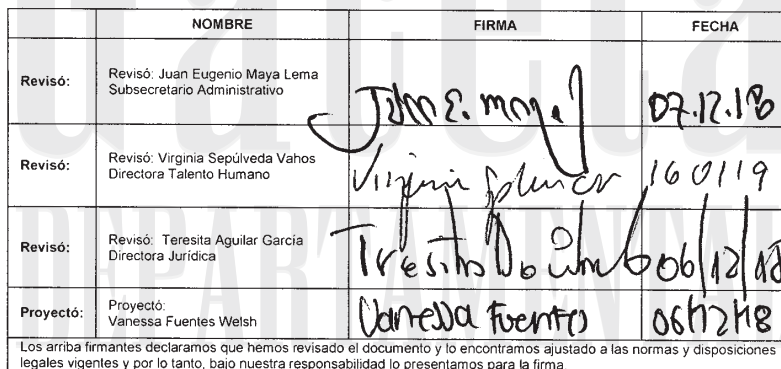 NOMBRE FIRMA FECHA
Revisó: Revisó: Juan Eugenio Maya Lema
Subsecretario Administrativo
Juan E. maya 07.12.18
Revisó: Revisó: Virginia Sepúlveda Vahos
Directora Talento Humano
Virginia 160119
Revisó: Revisó: Teresita Aguilar García
Directora Jurídica
06/12/18
Proyectó: Proyectó:
Vanessa Fuentes Welsh
Vanessa Fuentes 06/12/18
Los arriba firmantes declaramos que hemos revisado el documento y lo encontramos ajustado a las normas y disposiciones
legales vigentes y por lo tanto, bajo nuestra responsabilidad lo presentamos para la firma
DEPARTAMENTAL